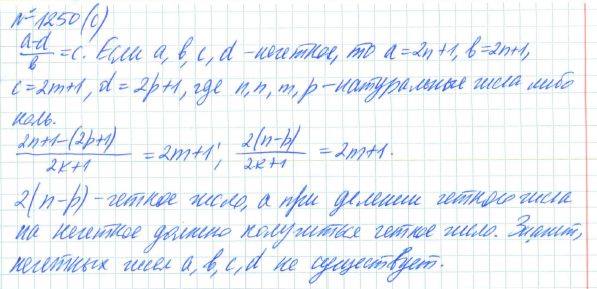 № 1250 (с)
(a-d)/b = c. Если a, b, c, d - нечетное, то a = 2n+1, b = 2n+1,
c = 2m+1, d = 2p+1, где n, n, m, p - натуральные числа либо
ноль.
(2n+1-(2p+1))/(2k+1) = 2m+1; (2(n-p))/(2k+1) = 2m+1.
2(n-p) - четное число, а при делении четного числа
на нечетное должно получиться четное число. Значит,
нечетных чисел a, b, c, d не существует.